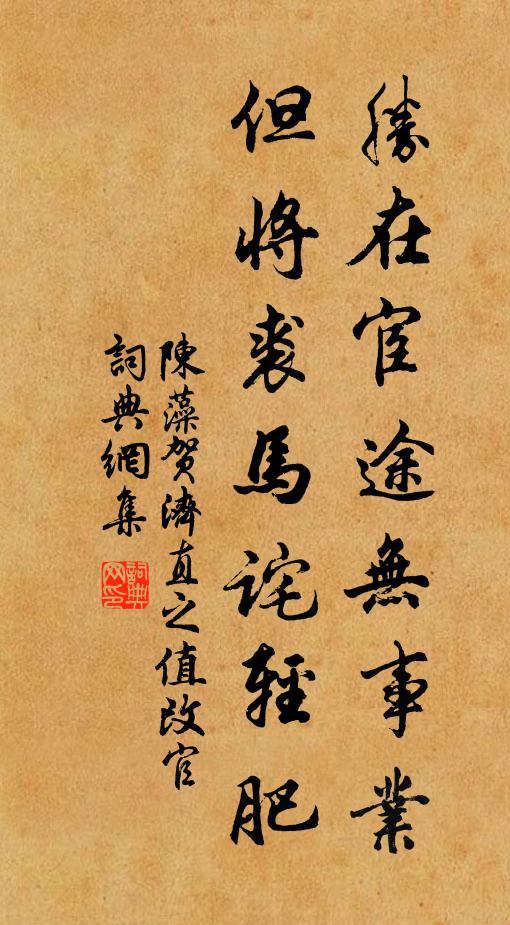 勝在宦途無事業
但將裘馬詫輕肥
陳藻賀濟直之值改官
詞典網集
詞典网印